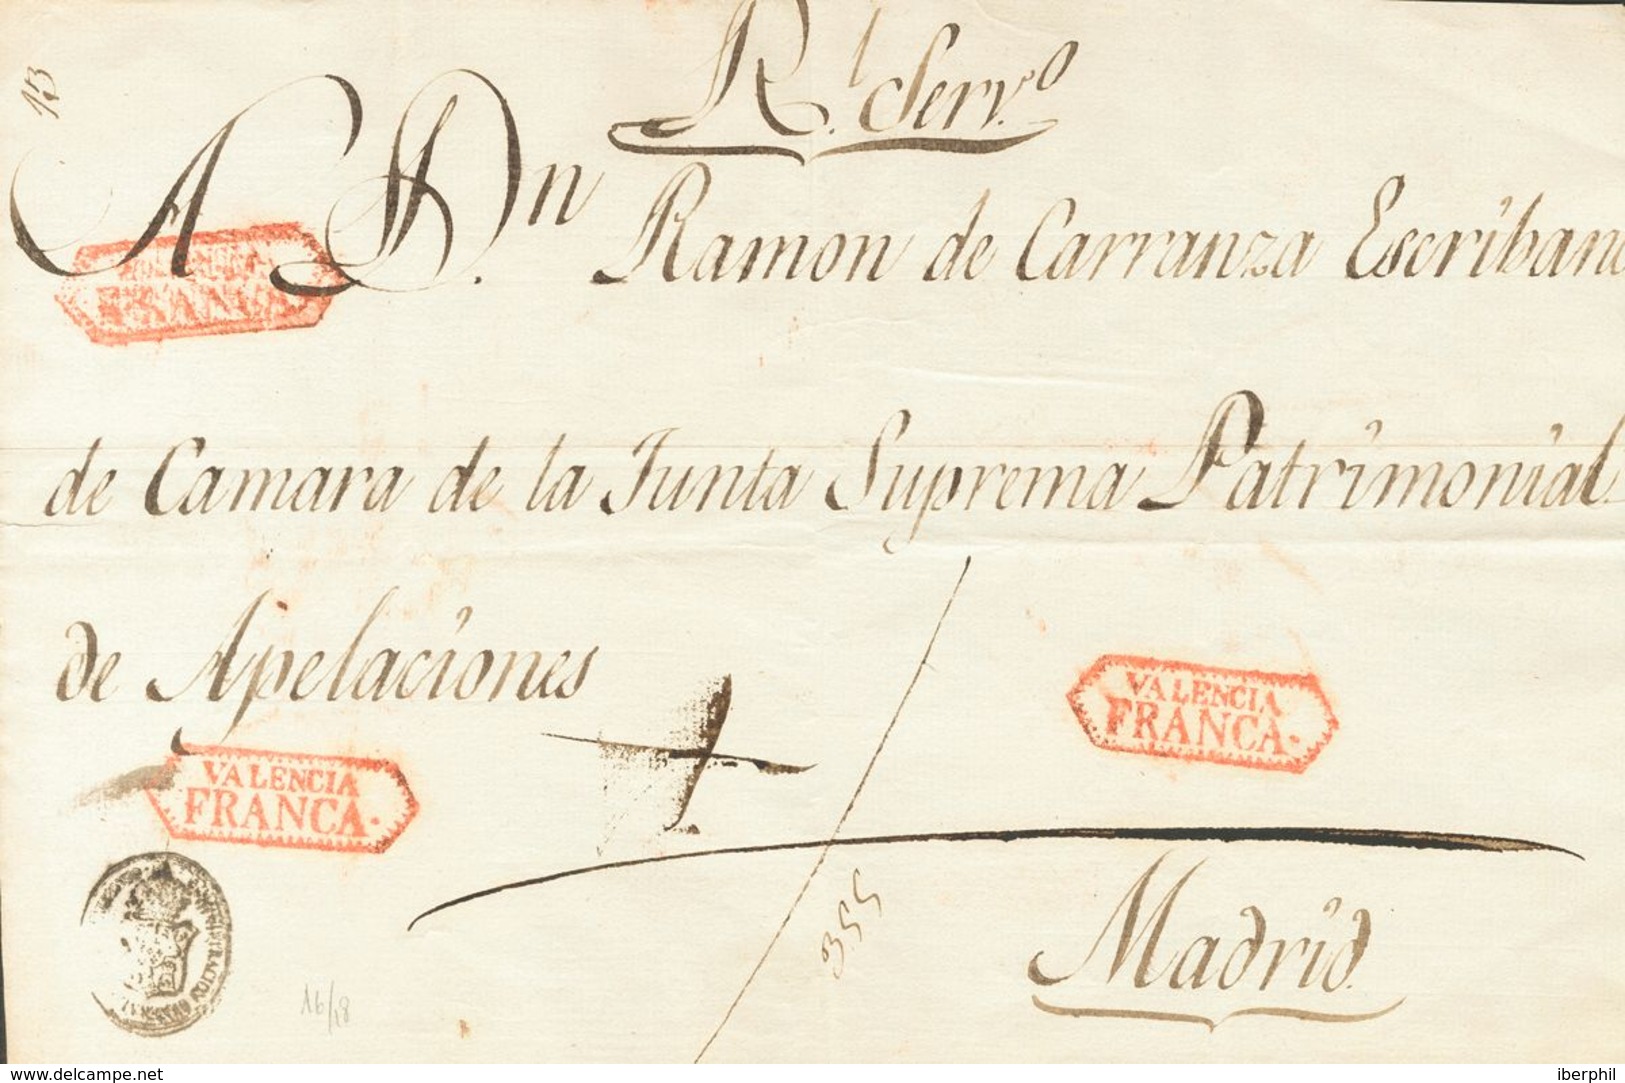 13
R.l Serv.o
A D.n Ramon de Carranza Escribano
FRANCA
de Camara de la Junta Suprema Patrimonial
de Apelaciones
VALENCIA
FRANCA.
VALENCIA
FRANCA.
355
Madrid.
16/18
www.delcampe.net
iberphil